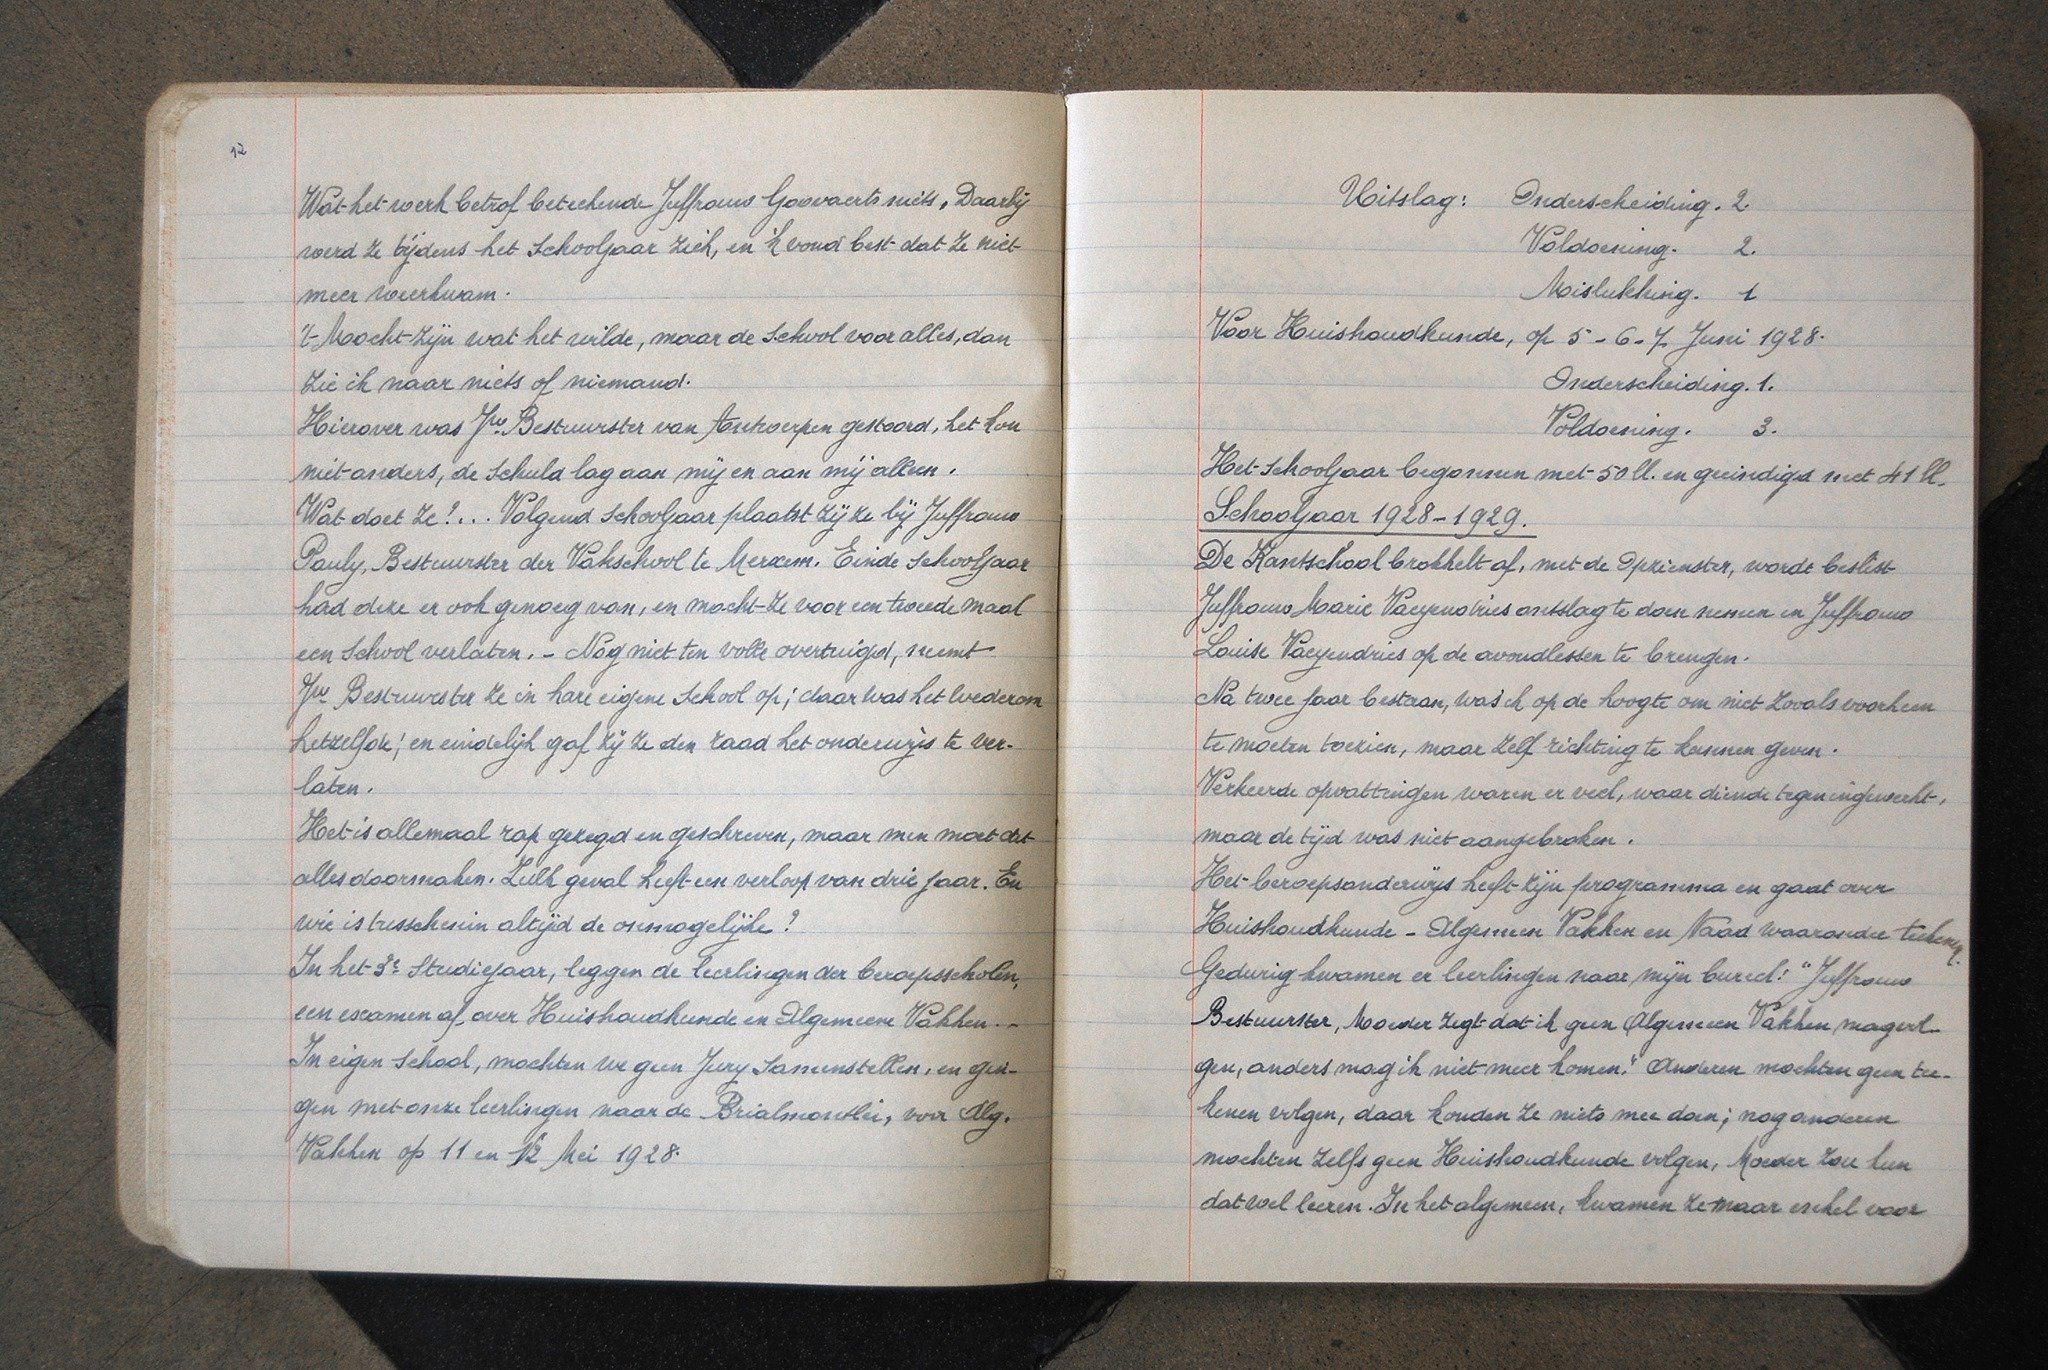 12
Wat het werk betrof beteekende Juffrouw Goovaerts niets. Daarbij
werd ze tijdens het Schooljaar ziek, en 'k vond best dat ze niet
meer weerkwam.
't Mocht zijn wat het wilde, maar de School voor alles, dan
zie ik naar niets of niemand.
Hierover was Jfw. Bestuurster van Antwerpen gestoord, het kon
niet anders, de schuld lag aan mij en aan mij alleen.
Wat doet ze?... Volgend schooljaar plaatst zij ze bij Juffrouw
Pauly, Bestuurster der Vakschool te Merxem. Einde Schooljaar
had deze er ook genoeg van, en mocht ze voor een tweede maal
een School verlaten. - Nog niet ten volle overtuigd, neemt
Jfw Bestuurster ze in hare eigene School op; daar was het wederom
hetzelfde; en eindelijk gaf zij ze den raad het onderwijs te ver-
laten.
Het is allemaal rap gezegd en geschreven, maar men moet dat
alles doormaken. Zulk geval heeft een verloop van drie jaar. En
wie is tusschenin altijd de onmogelijke?
In het 3e Studiejaar, leggen de leerlingen der beroepsscholen,
een examen af over Huishoudkunde en Algemeene Vakken. -
In eigen School, mochten we geen Jury Samenstellen, en gin-
gen met onze leerlingen naar de Brialmontlei, voor Alg.
Vakken op 11 en 12 Mei 1928.
Uitslag: Onderscheiding. 2
Voldoening. 2.
Mislukking. 1
Voor Huishoudkunde, op 5 - 6 - 7 Juni 1928.
Onderscheiding. 1.
Voldoening. 3.
Het Schooljaar begonnen met 50 ll. en geëindigd met 41 ll.
Schooljaar 1928-1929.
De Kantschool brokkelt af, met de Opziener, wordt beslist
Juffrouw Marie Vaeyendries ontslag te doen nemen en Juffrouw
Louise Vaeyendries op de avondlessen te brengen.
Na twee jaar bestaan, was ik op de hoogte om niet zooals voorheen
te moeten toezien, maar zelf richting te kunnen geven.
Verkeerde opvattingen waren er veel, waar diende tegen ingewerkt,
maar de tijd was niet aangebroken.
Het beroepsonderwijs heeft zijn programma en gaat over
Huishoudkunde - Algemeen Vakken en Naad waaronder teekenen.
Gedurig kwamen er leerlingen naar mijn bureel: "Juffrouw
Bestuurster, Moeder zegt dat ik geen Algemeen Vakken mag vol-
gen, anders mag ik niet meer komen." Anderen mochten geen tee-
kenen volgen, daar konden ze niets mee doen; nog anderen
mochten zelfs geen Huishoudkunde volgen, Moeder zou hun
dat wel leeren. In het algemeen, kwamen ze maar enkel voor